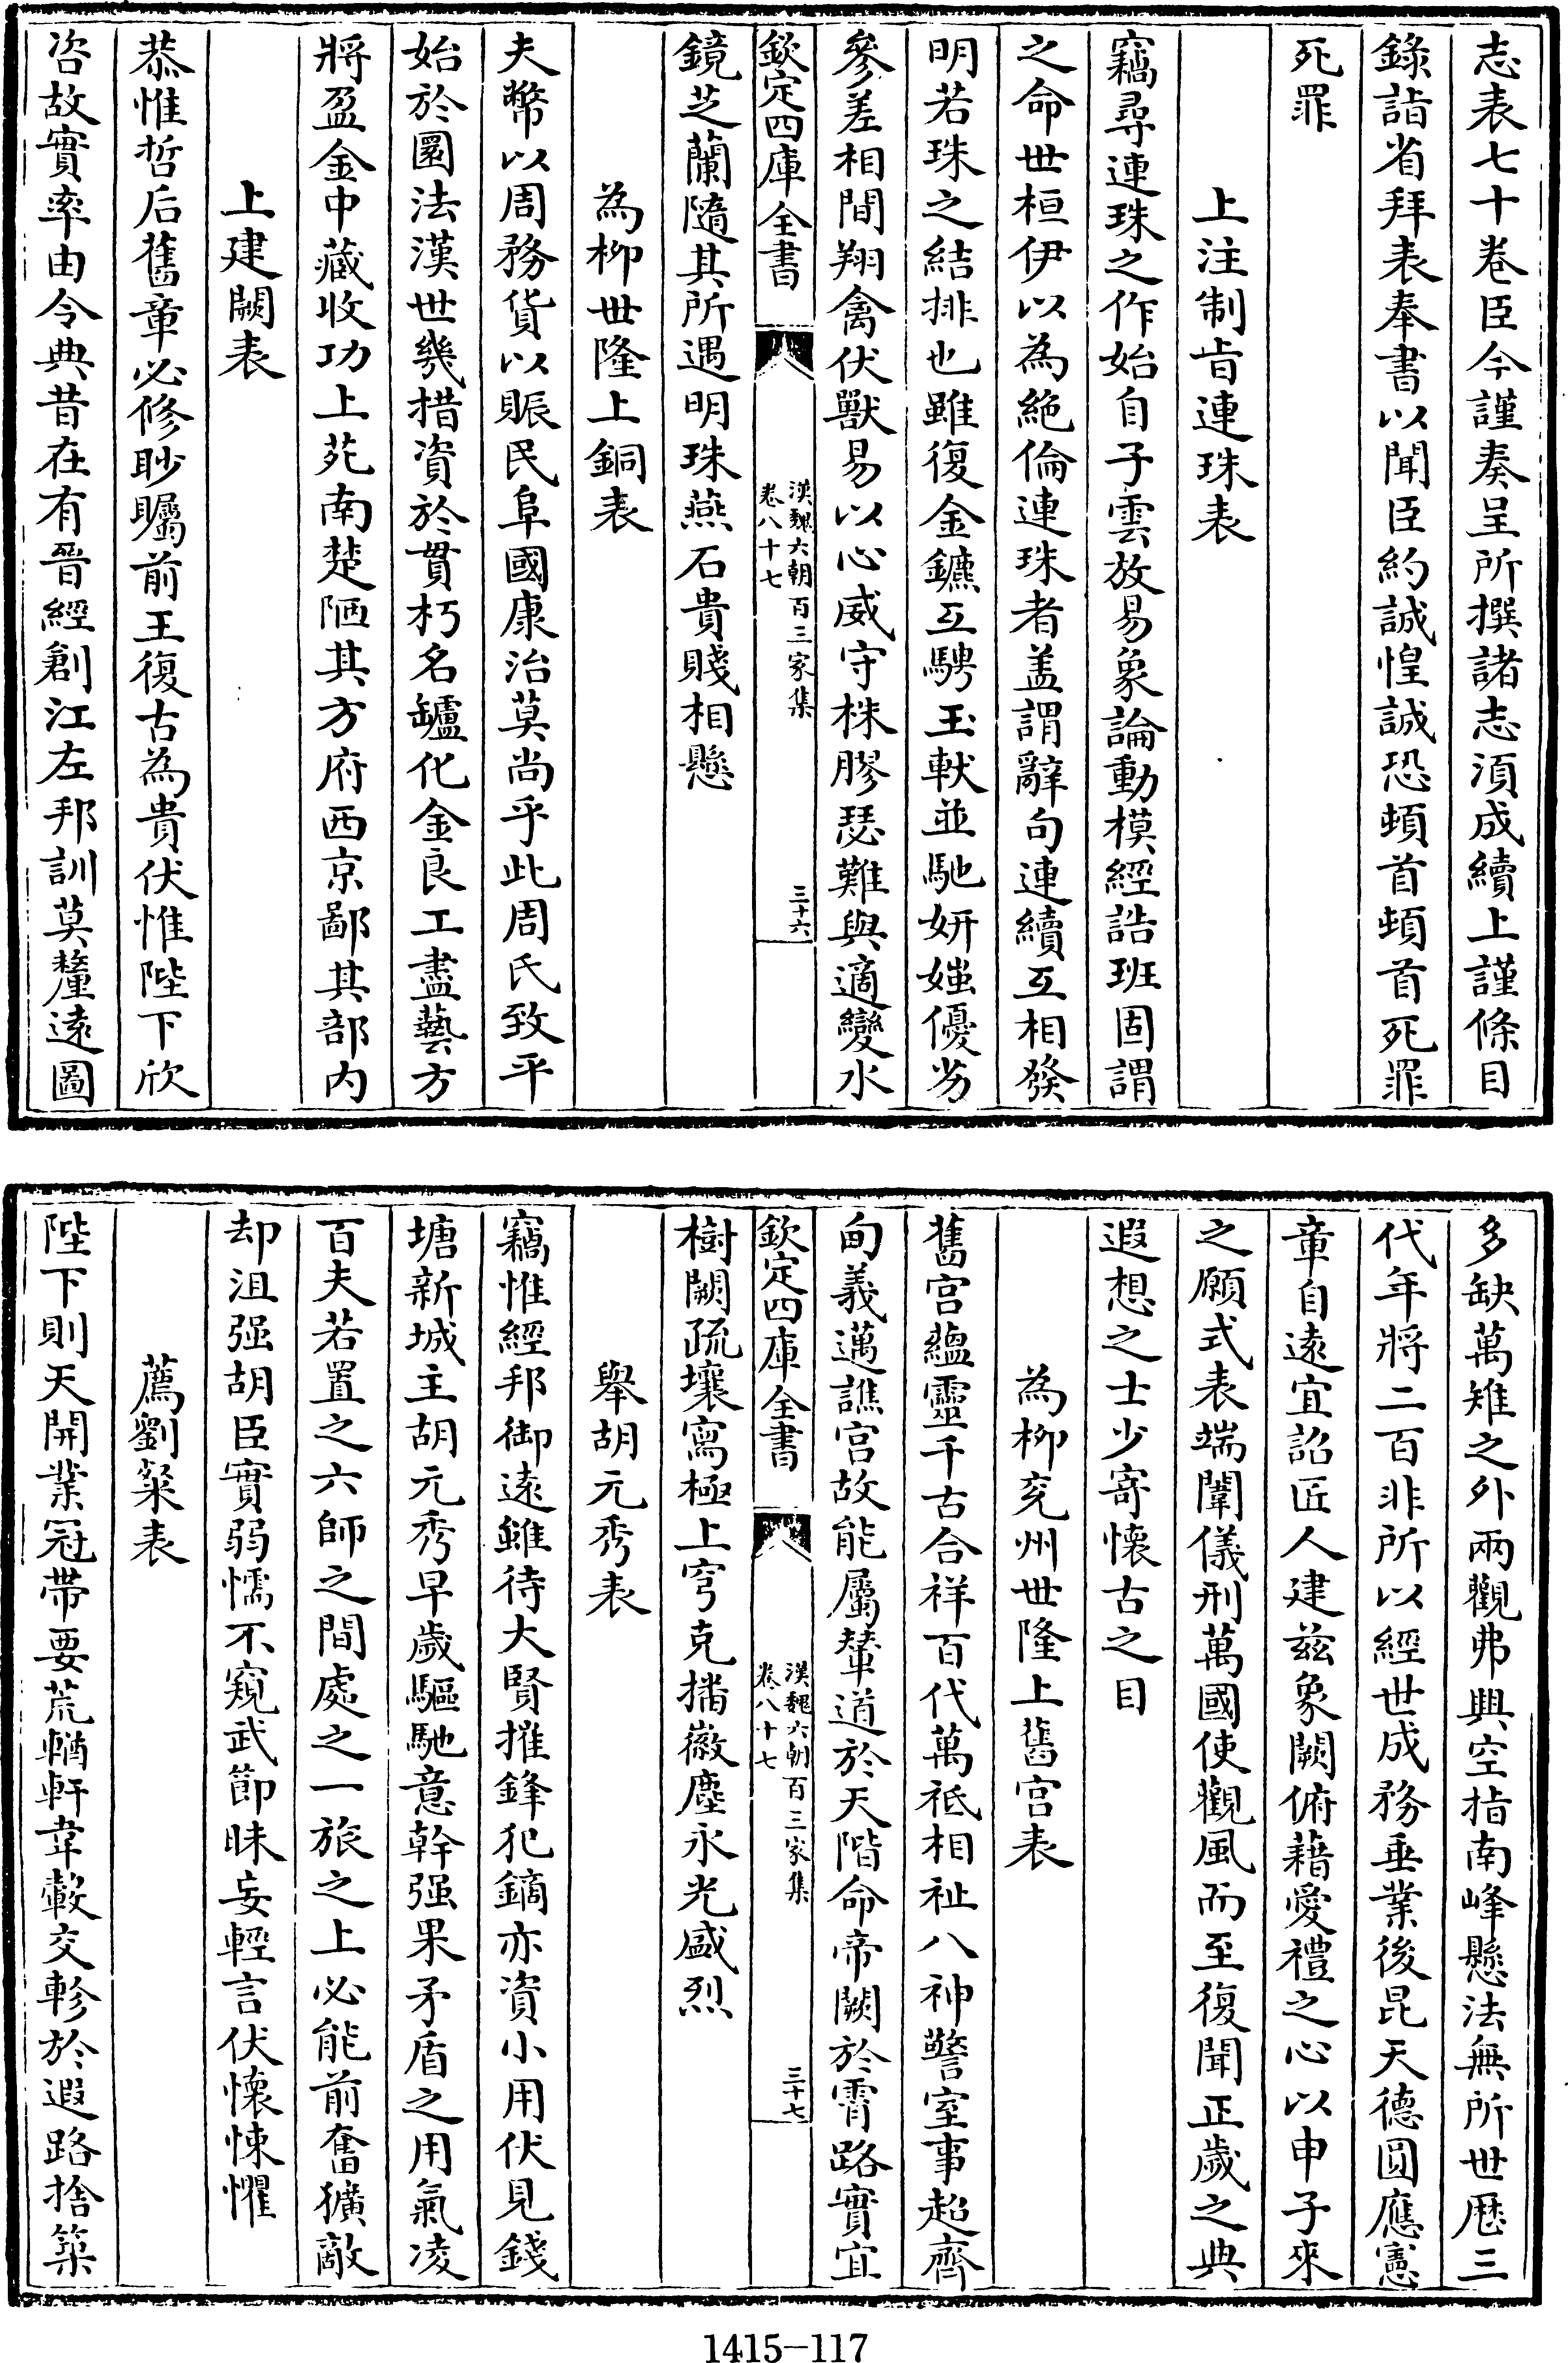 志表七十卷臣今謹奏呈所撰諸志須成續上謹條目
錄詣省拜表奉書以聞臣約誠惶誠恐頓首頓首死罪
死罪
上注制旨連珠表
竊尋連珠之作始自子雲放易象論動模經誥班固謂
之命世桓伊以為絶倫連珠者盖謂辭句連續互相發
明若珠之結排也雖復金鑣互騁玉軑並馳妍媸優劣
參差相間翔禽伏獸易以心威守株膠瑟難與適變水
欽定四庫全書
漢魏六朝百三家集
卷八十七
三十六
鏡芝蘭隨其所遇明珠燕石貴賤相懸
為柳世隆上銅表
夫幣以周務貨以賑民阜國康治莫尚乎此周氏致平
始於圜法漢世幾措資於貫朽名罏化金良工盡藝方
將盈金中藏收功上苑南楚陋其方府西京鄙其部内
上建闕表
恭惟哲后舊章必修眇矚前王復古為貴伏惟陛下欣
咨故實率由令典昔在有晉經創江左邦訓莫釐遠圖
多缺萬雉之外兩觀弗興空指南峰懸法無所世歷三
代年將二百非所以經世成務垂業後昆天德圓應憲
章自遠宜詔匠人建兹象闕俯藉愛禮之心以申子來
之願式表端闈儀刑萬國使觀風而至復聞正歲之典
遐想之士少寄懷古之目
為柳兖州世隆上舊宫表
舊宫蘊靈千古合祥百代萬祗相祉八神警室事超齊
甸義邁譙宫故能屬輦道於天階命帝闕於霄路實宜
欽定四庫全書
漢魏六朝百三家集
卷八十七
三十七
樹闕疏壤寫極上穹克播徽塵永光盛烈
舉胡元秀表
竊惟經邦御遠雖待大賢摧鋒犯鏑亦資小用伏見錢
塘新城主胡元秀早歲驅馳意幹强果矛盾之用氣凌
百夫若置之六師之間處之一旅之上必能前奮獷敵
却沮强胡臣實弱懦不窺武節昧妄輕言伏懷悚懼
薦劉粲表
陛下則天開業冠帶要荒輶軒韋轂交軫於遐路捨築
1415-117